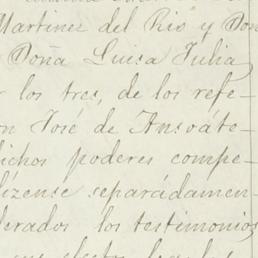 Martinez del Rio y Don
Doña Luisa Julia
r los tres, de los refe-
on José de Ansoáte-
dichos poderes compe-
lízense separádamen-
derados los testimonios